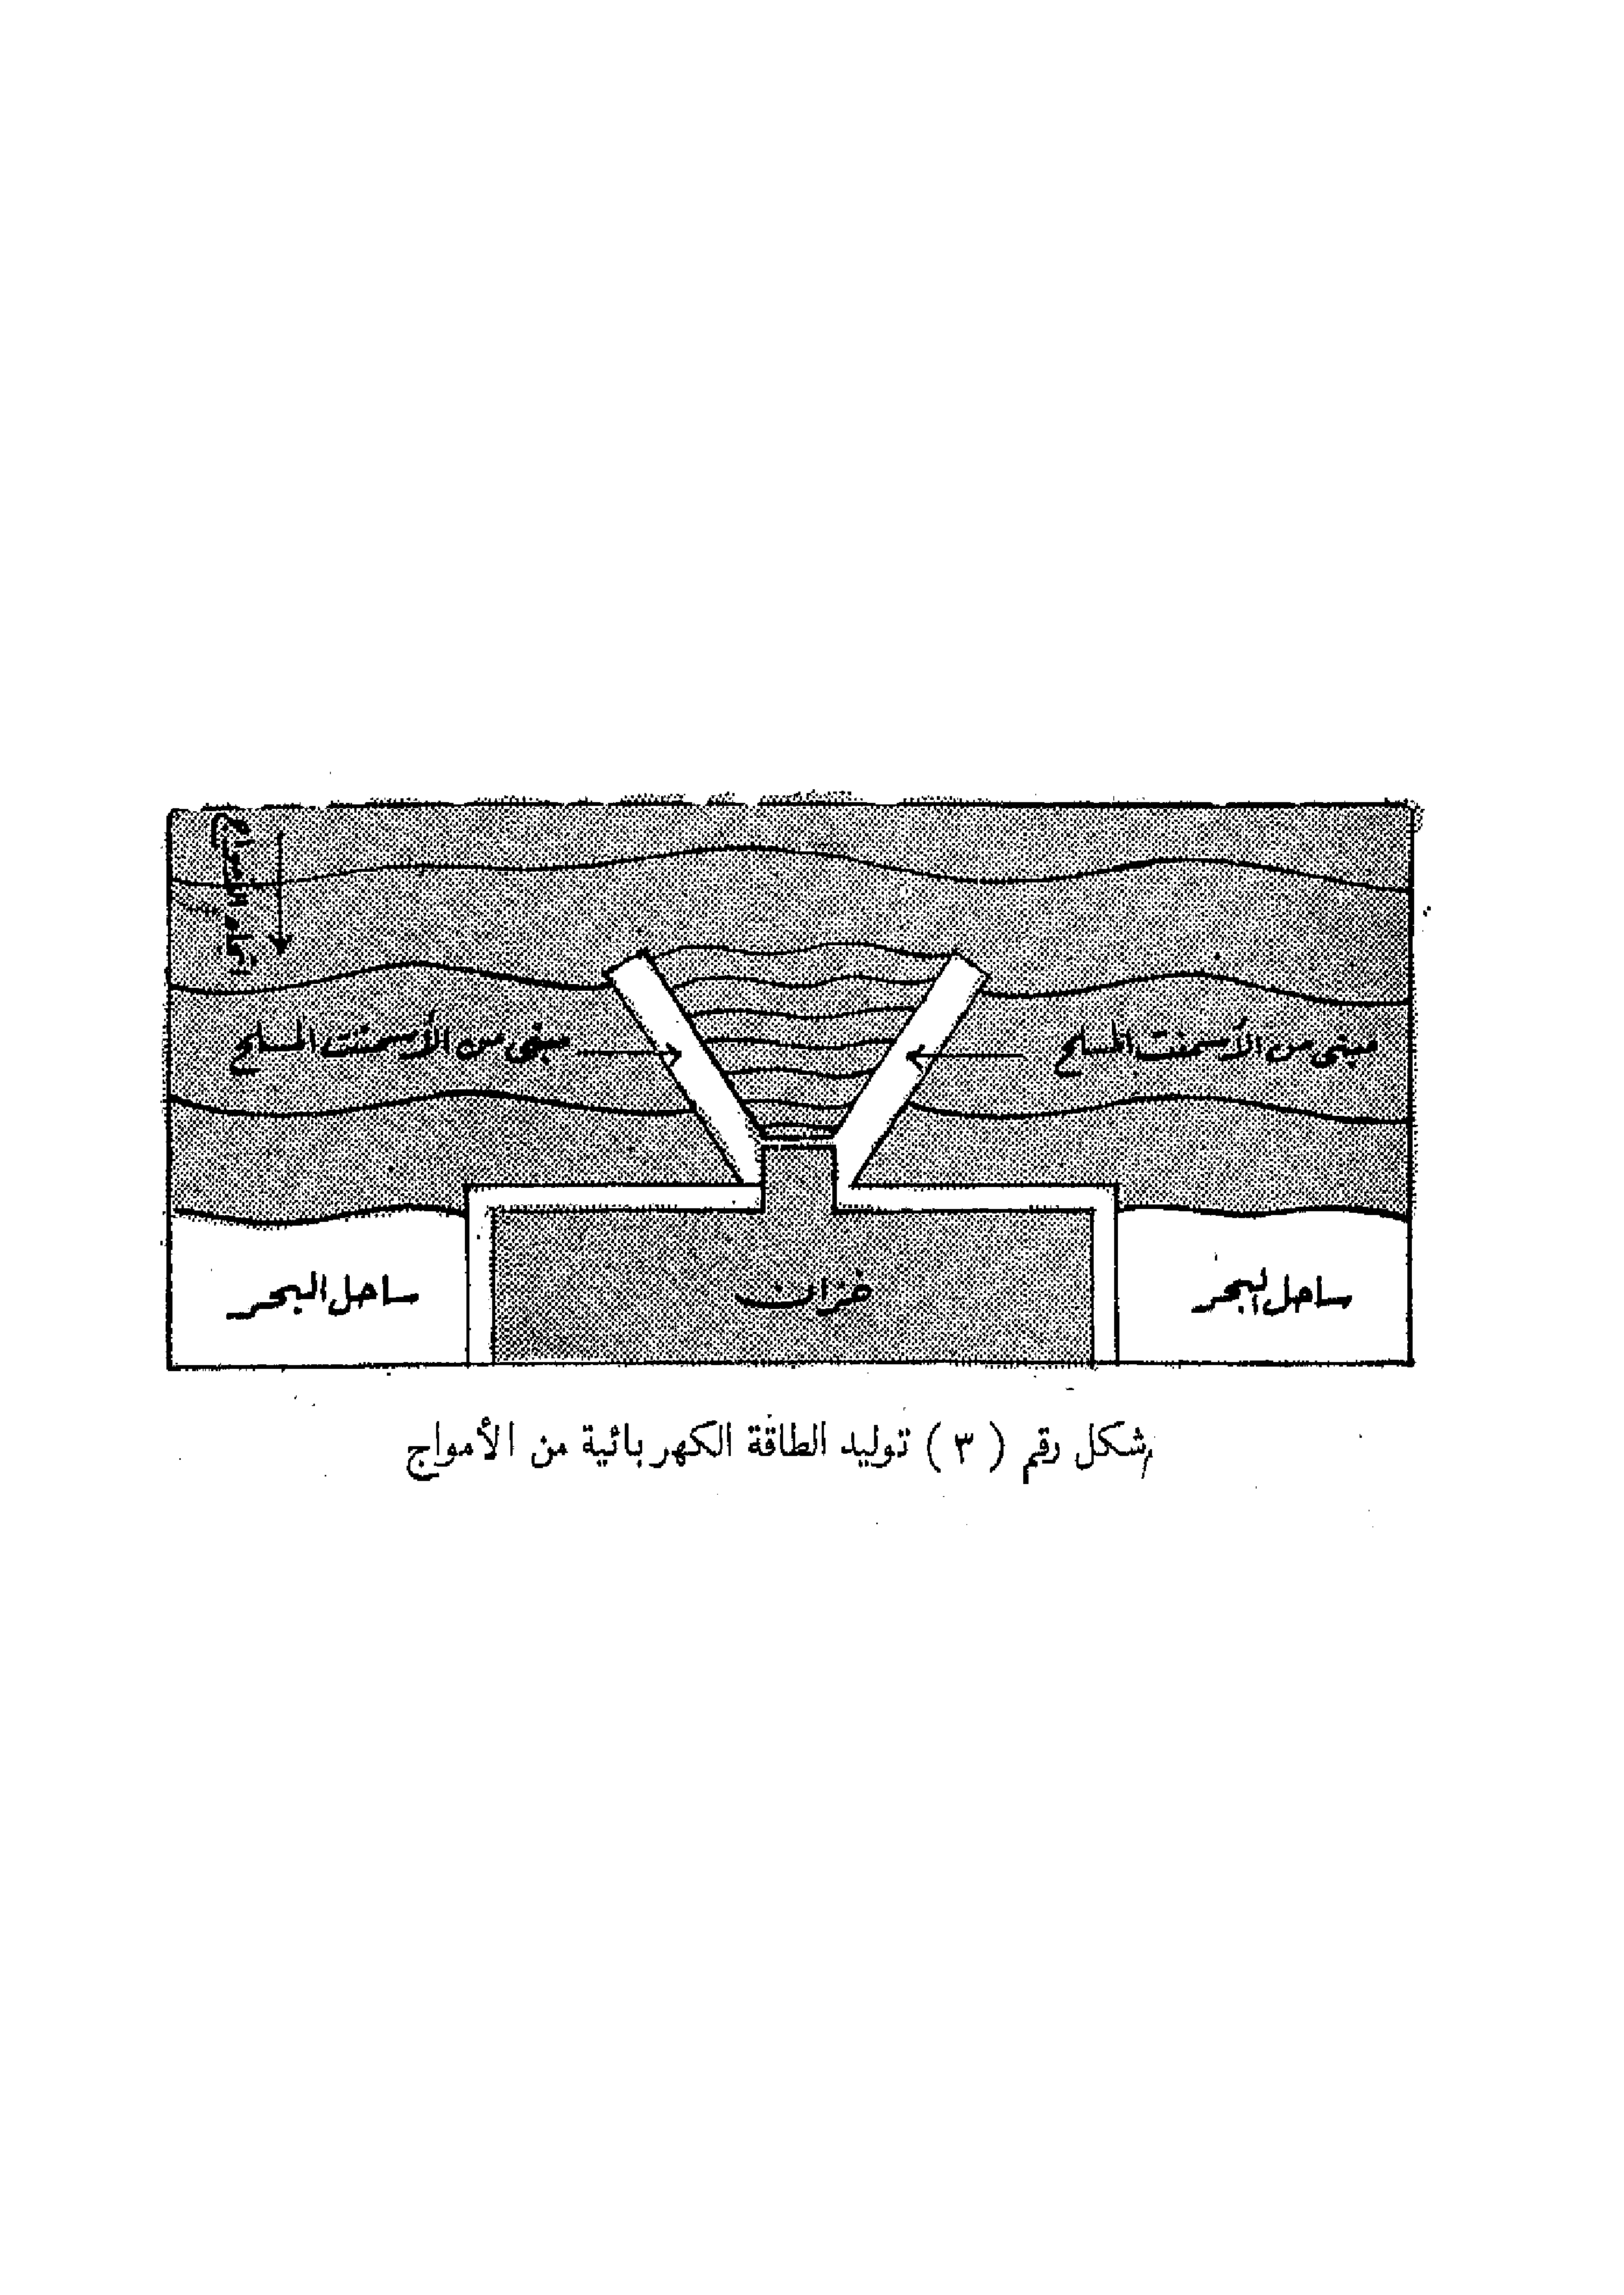 اتجاه الأمواج
مبنى من الأسمنت المسلح
مبنى من الأسمنت المسلح
ساحل البحر
خزان
ساحل البحر
شكل رقم ( ٣ ) توليد الطاقة الكهربائية من الأمواج